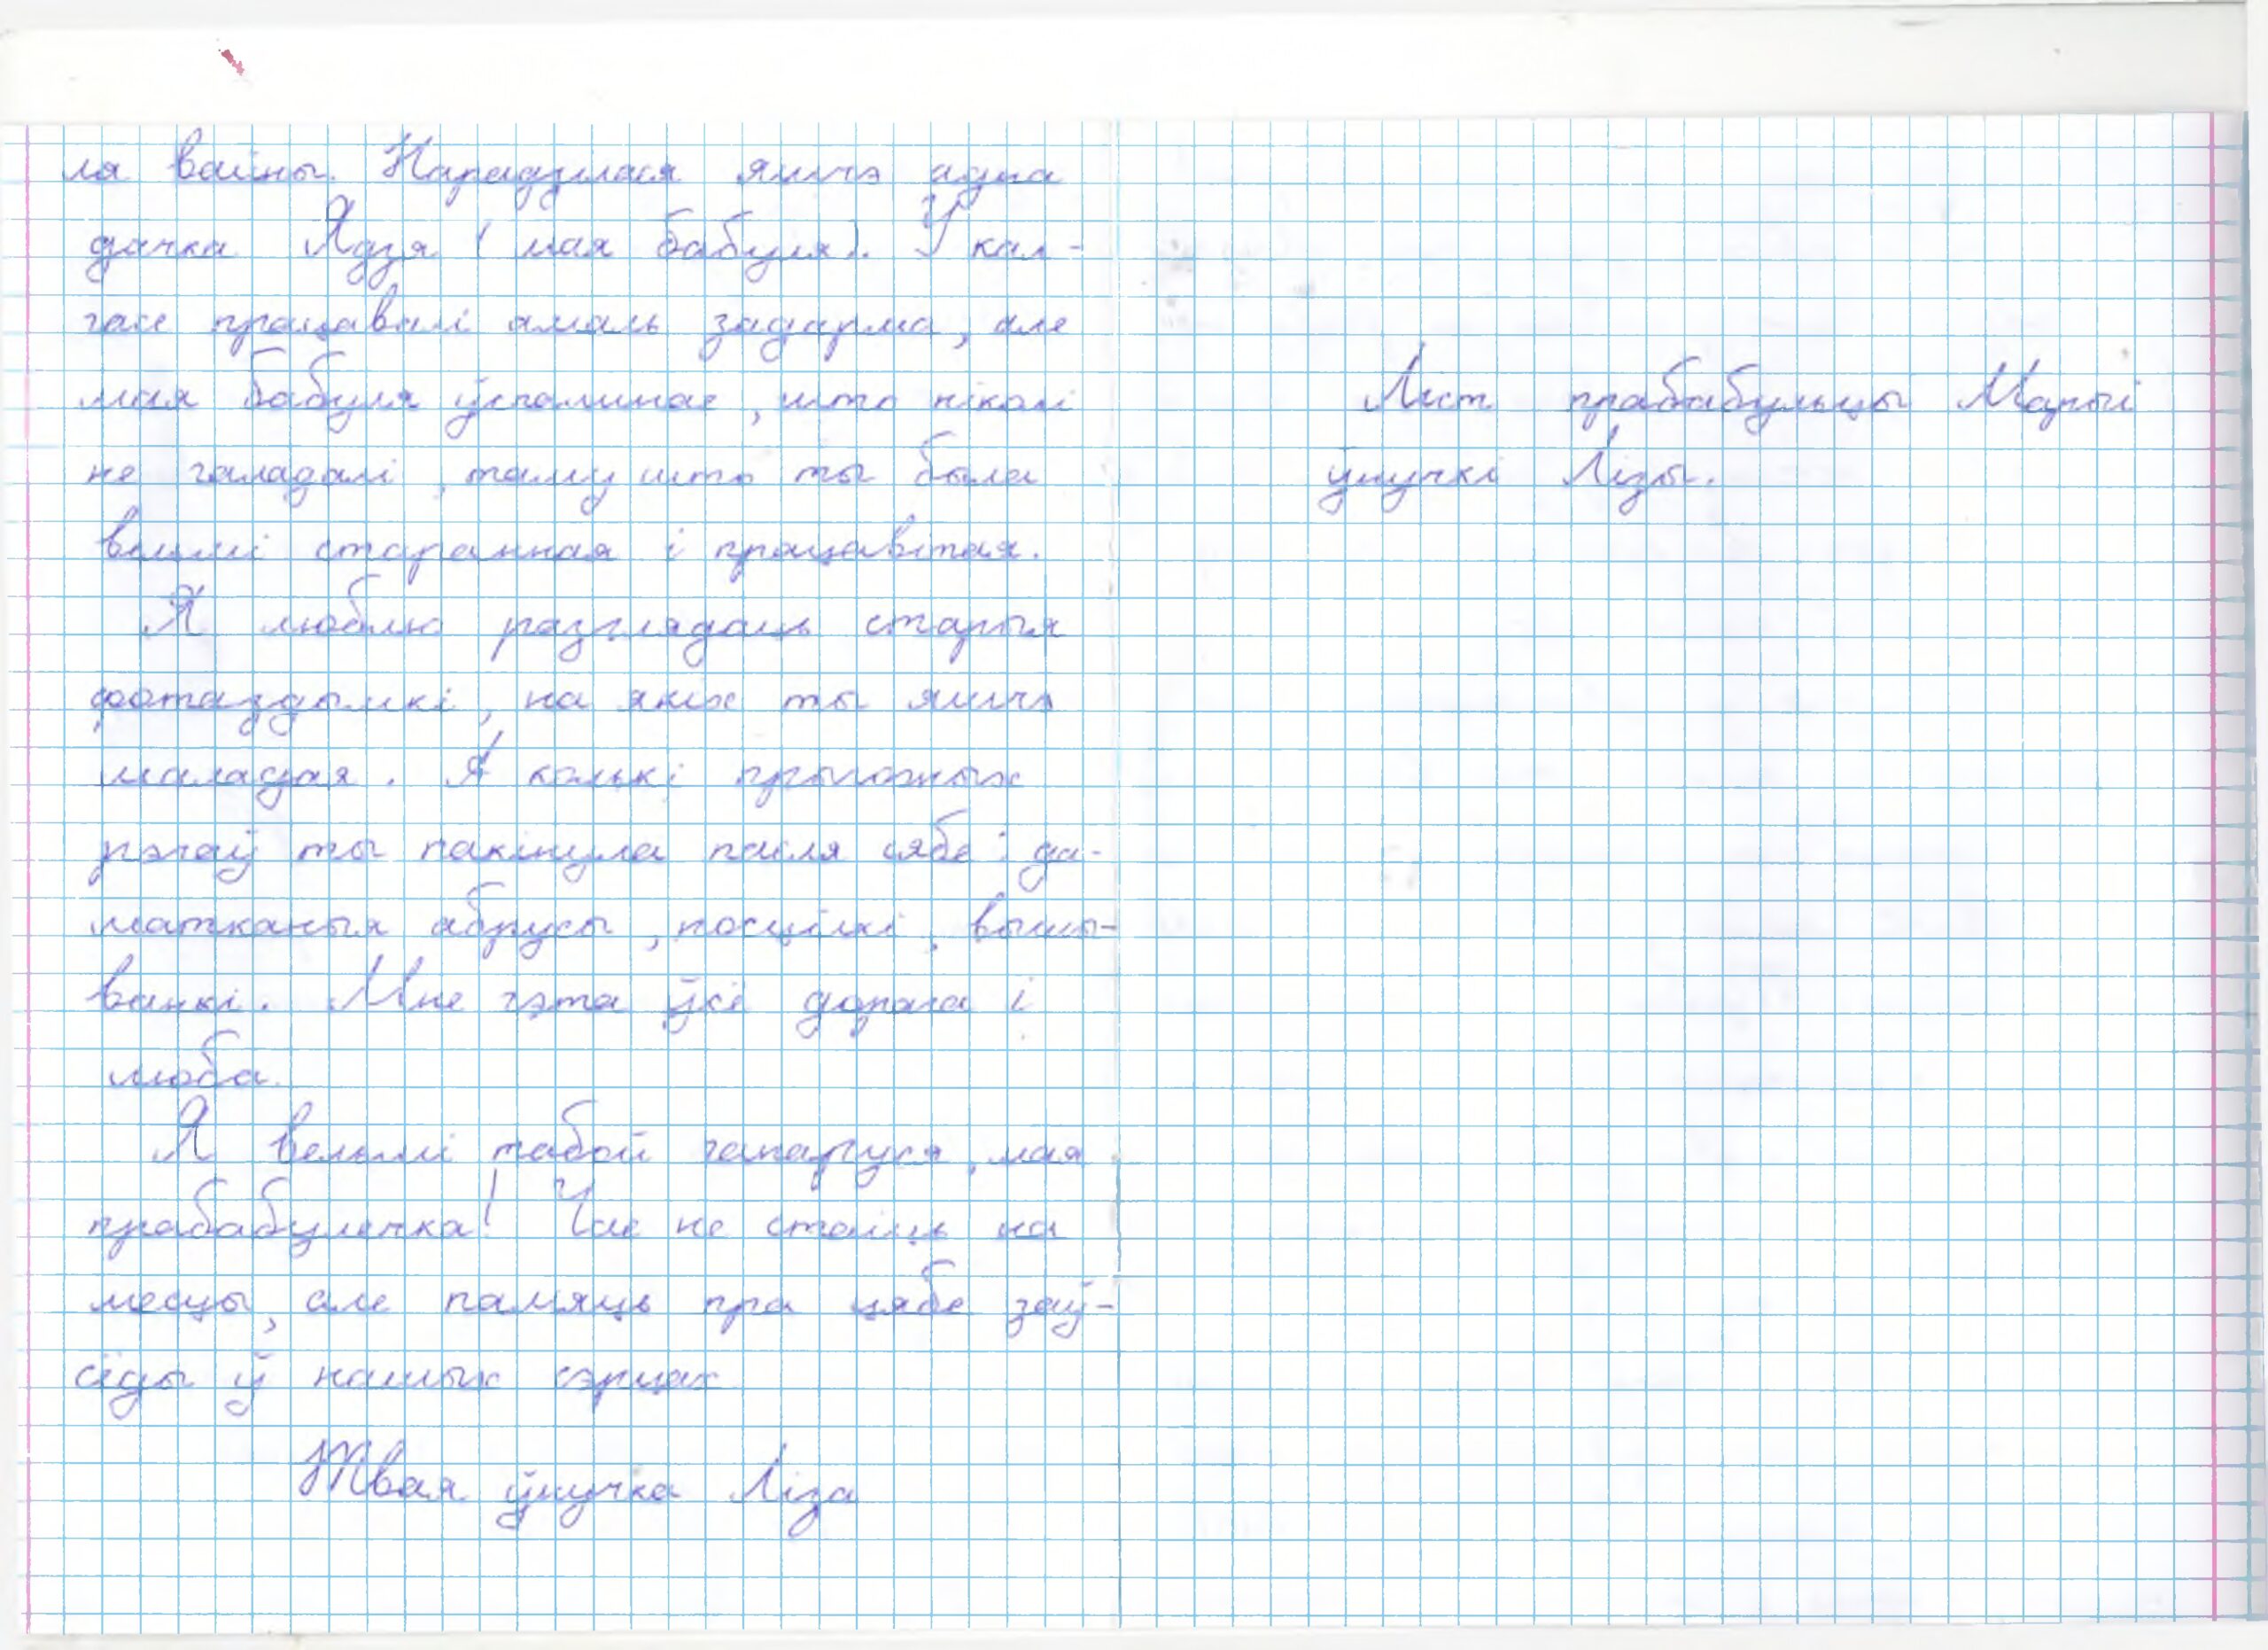 ля вайны. Нарадзілася яшчэ адна
дачка Ядзя (мая бабуля). У кал-
гасе працавалі амаль задарма, але
мая бабуля ўспамінае, што ніколі
не галадалі, таму што ты была
вельмі старанная і працавітая.
Я люблю разглядаць старыя
фотаздымкі, на якіх ты яшчэ
маладая. А колькі прыгожых
рэчаў ты пакінула пасля сябе: да-
матканыя абрусы, посцілкі, вышы-
ванкі. Мне гэта ўсё дорага і
люба.
Я вельмі табой ганаруся, мая
прабабулечка! Час не стаіць на
месцы, але памяць пра цябе заў-
сёды ў нашых сэрцах
Твая ўнучка Ліза
Ліст прабабульцы Марыі
ўнучкі Лізы.